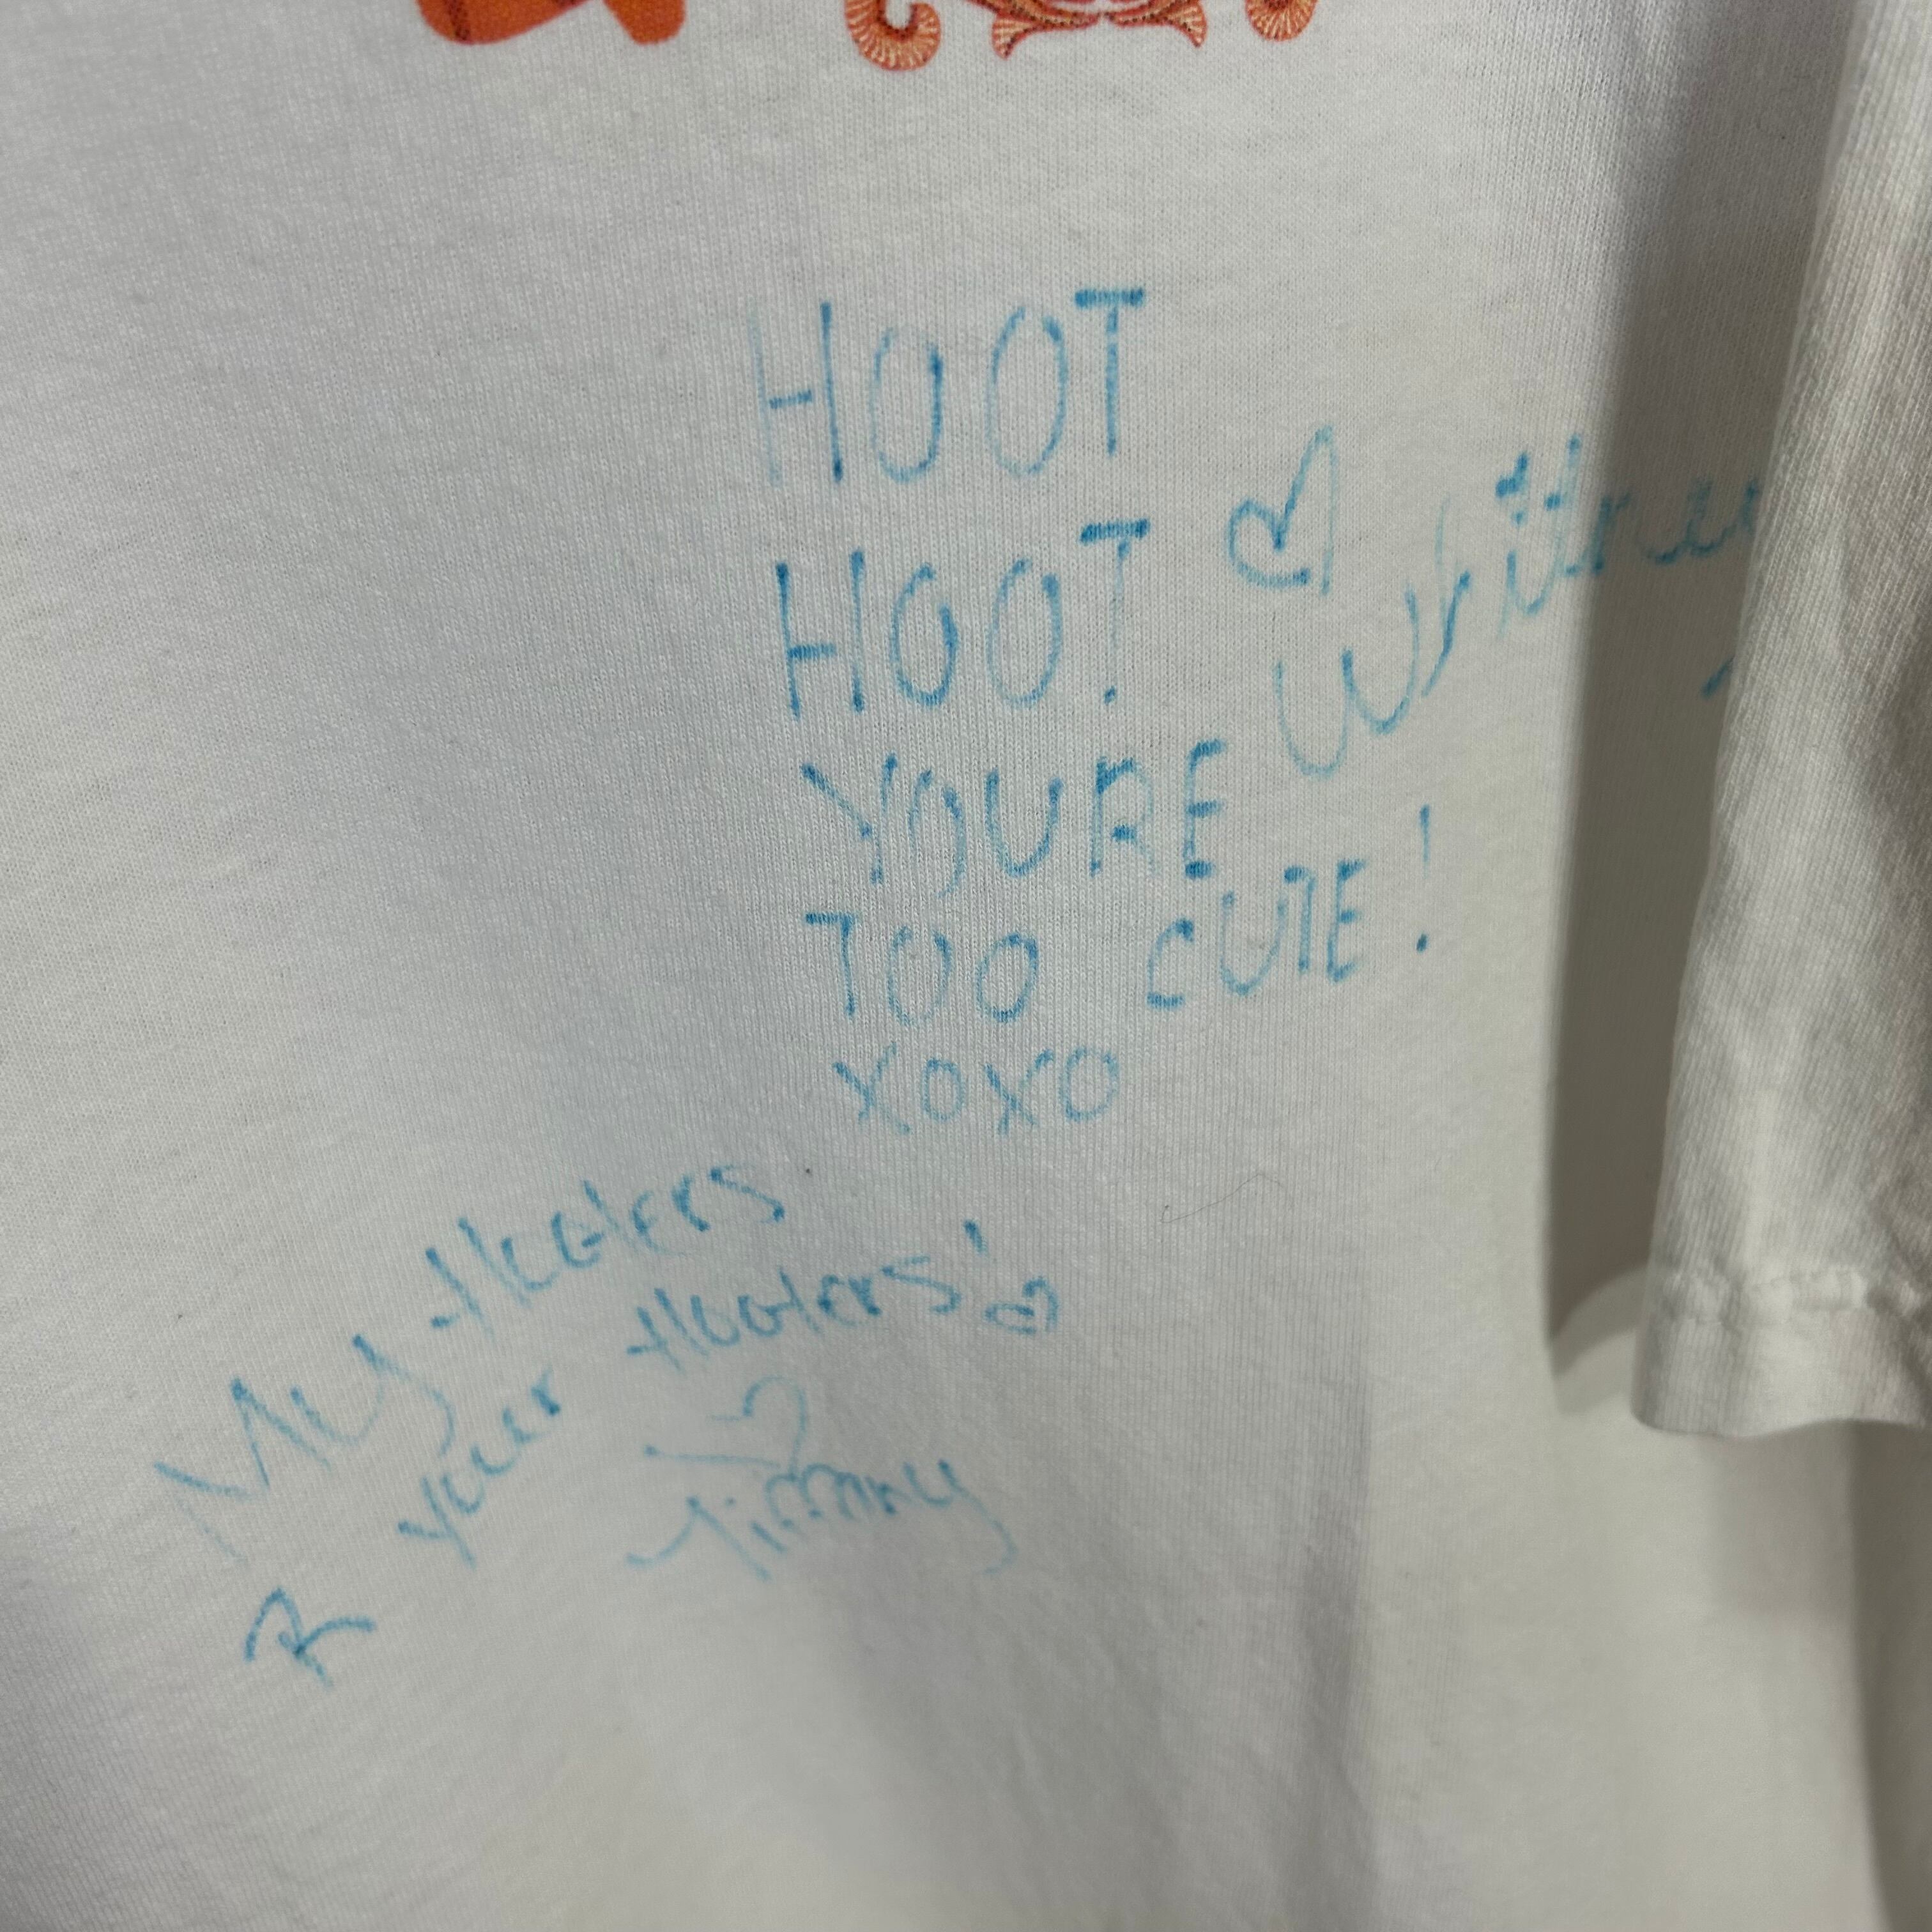 HOOT
HOOT.
YOURE
TOO CUTE!
XOXO
My Hooters
R your Hooters!
Tiffany